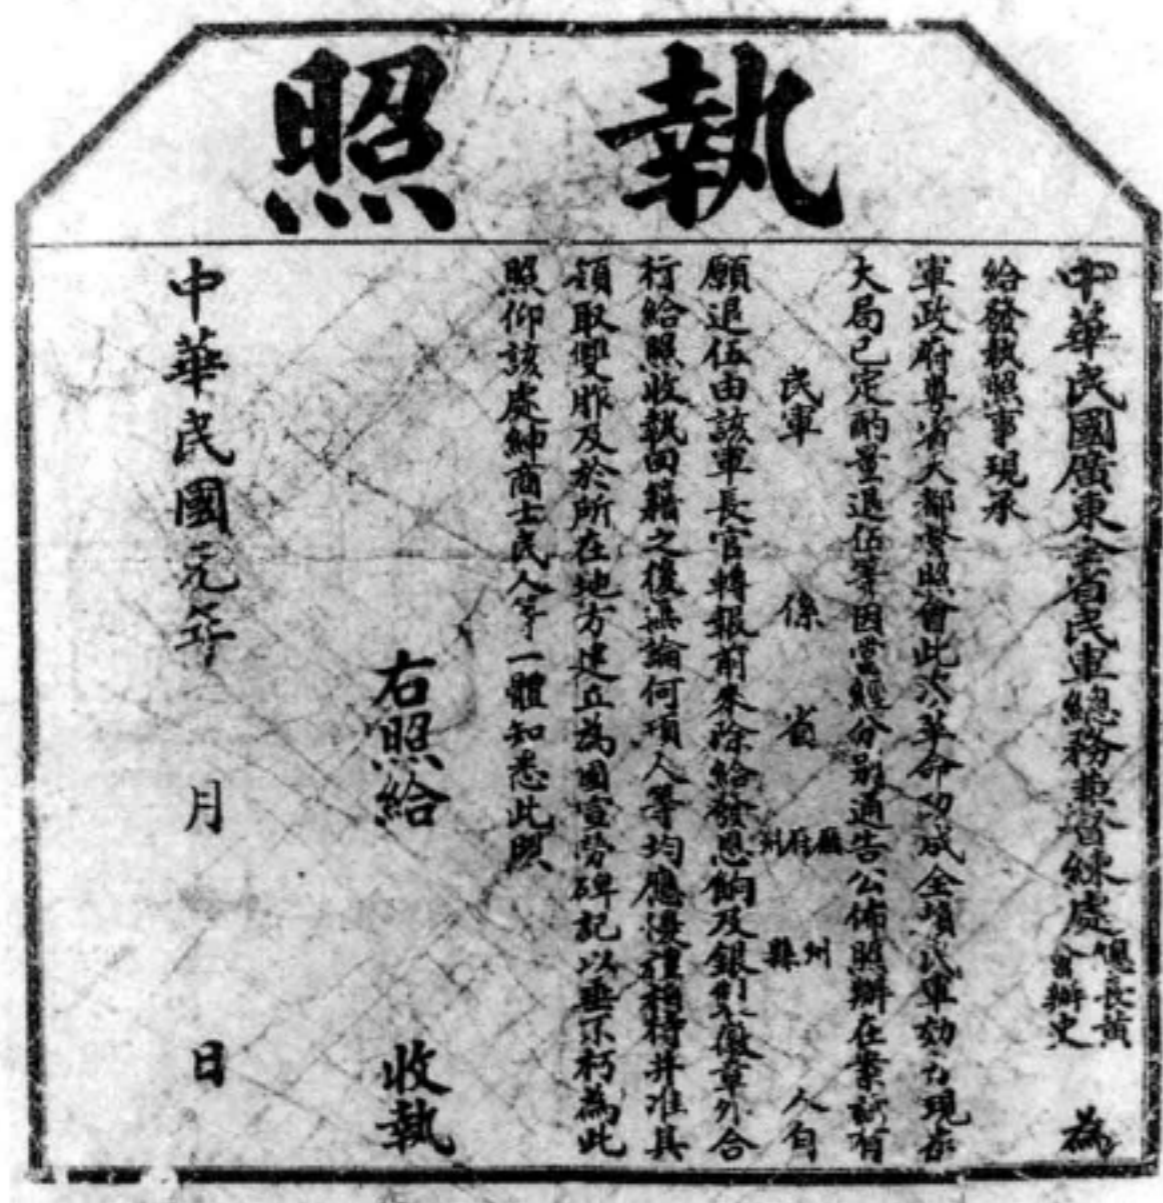 執照
中華民國廣東全省民軍總務兼督練處總長黃會辦史為
給發執照事現承
軍政府粵省大都督照會此次革命功成全項民軍効力現在
大局已定酌量退伍等因當經分別通告公佈照辦在案茲有
民軍 係 省 廳府州 州縣 人自
願退伍由該軍長官轉報前來除給發恩餉及銀烈徽章外合
行給照收執回籍之後無論何項人等均應優禮相待并准其
領取雙胙及於所在地方建立為國宣勞碑記以垂不朽為此
照仰該處紳商士民人等一體知悉此照
右照給 收執
中華民國元年 月 日